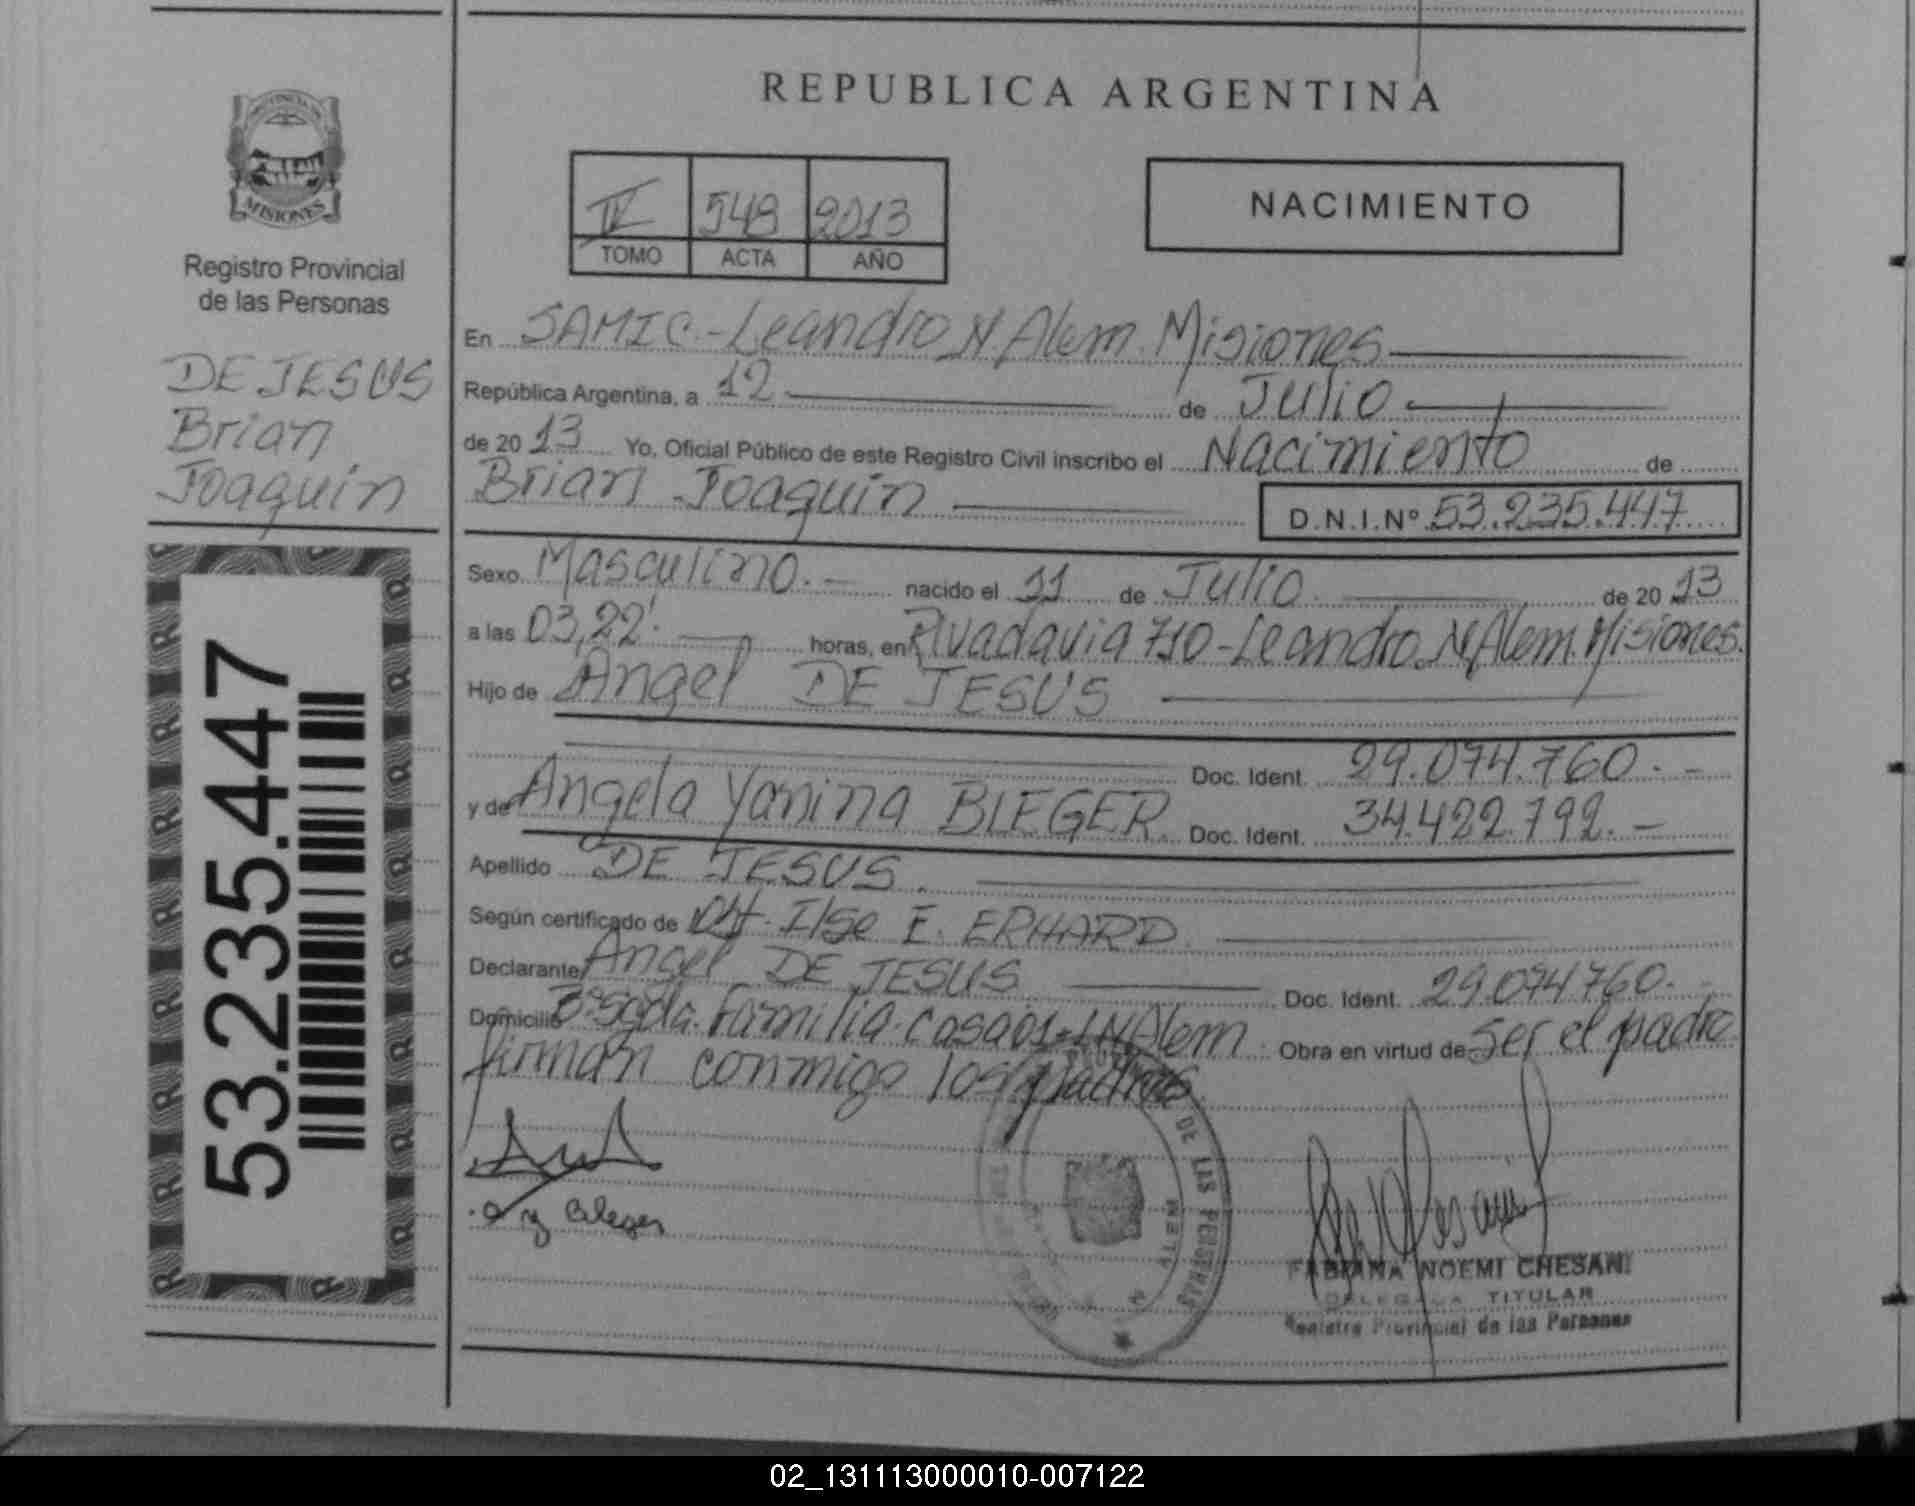 REPUBLICA ARGENTINA
PROVINCIA DE
MISIONES
Registro Provincial
de las Personas
DE JESUS
Brian
Joaquin
53.235.447
548 2013
TOMO ACTA AÑO
NACIMIENTO
En SAMIC.-Leandro N Alem. Misiones
República Argentina, a 12 de Julio
de 2013 Yo, Oficial Público de este Registro Civil inscribo el Nacimiento de
Brian Joaquin D.N.I.Nº 53.235.447
Sexo Masculino.- nacido el 11 de Julio de 2013
a las 03,22'. horas, en Rivadavia 710-Leandro N Alem. Misiones.
Hijo de Angel DE JESUS
Doc. Ident. 29.074.760.-
y de Angela Yanina BIEGER. Doc. Ident. 34.422.792.-
Apellido DE JESUS.
Según certificado de Obst. Ilse E. ERHARD
Declarante Angel DE JESUS Doc. Ident. 29.074760.-
Domicilio Bº Sgda. Familia. Casa 01-LNAlem. Obra en virtud de ser el padre
firman conmigo los padres.
DE LAS PERSONAS
N ALEM
FABIANA NOEMI CHESANI
DELEGADA TITULAR
Registro Provincial de las Personas
02_131113000010-007122